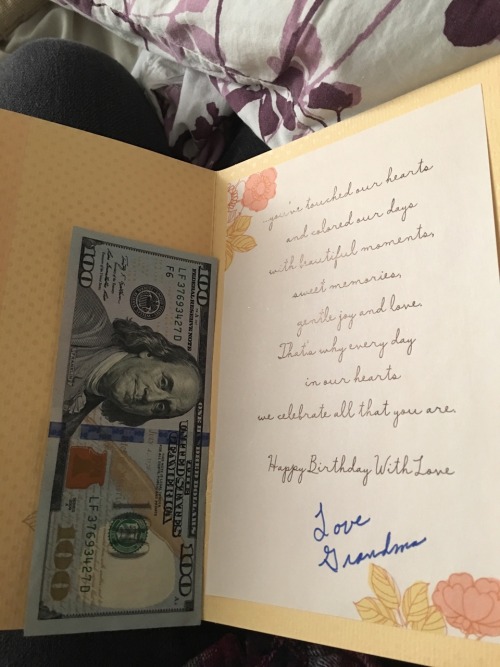 100
FEDERAL RESERVE NOTE
LF 37693427 D
F6
100
UNITED STATES
OF AMERICA
100
LF 37693427 D
100
...you've touched our hearts
and colored our days
with beautiful moments,
sweet memories,
gentle joy and love.
That's why every day
in our hearts
we celebrate all that you are.
Happy Birthday With Love
Love
Grandma